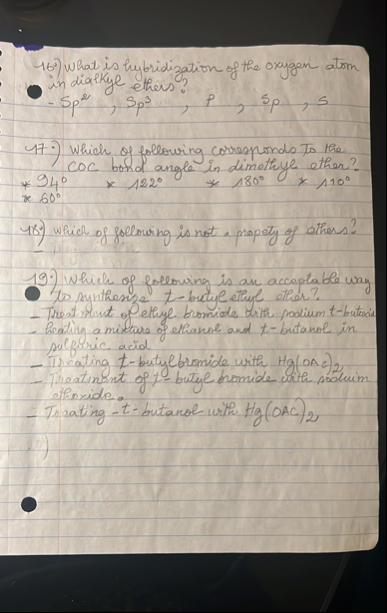 16:) What is hybridization of the oxygen atom
in dialkyl ethers?
- Sp², Sp³, P, Sp, S
17:) Which of following corresponds To the
COC bond angle in dimethyl ether?
* 94° * 122° * 180° * 110°
* 60°
18:) Which of following is not a propety of ethers?
19:) Which of following is an acceptable way
to synthesize t-butyl ethyl ether?
- Treatment of ethyl bromide with sodium t-butoxide
- heating a mixture of ethanol and t-butanol in
sulfuric acid
- Treating t-butylbromide with Hg(OAc)2
- Treatment of t-butyl bromide with soduim
ethoxide.
- Treating -t-butanol with Hg(OAC)2